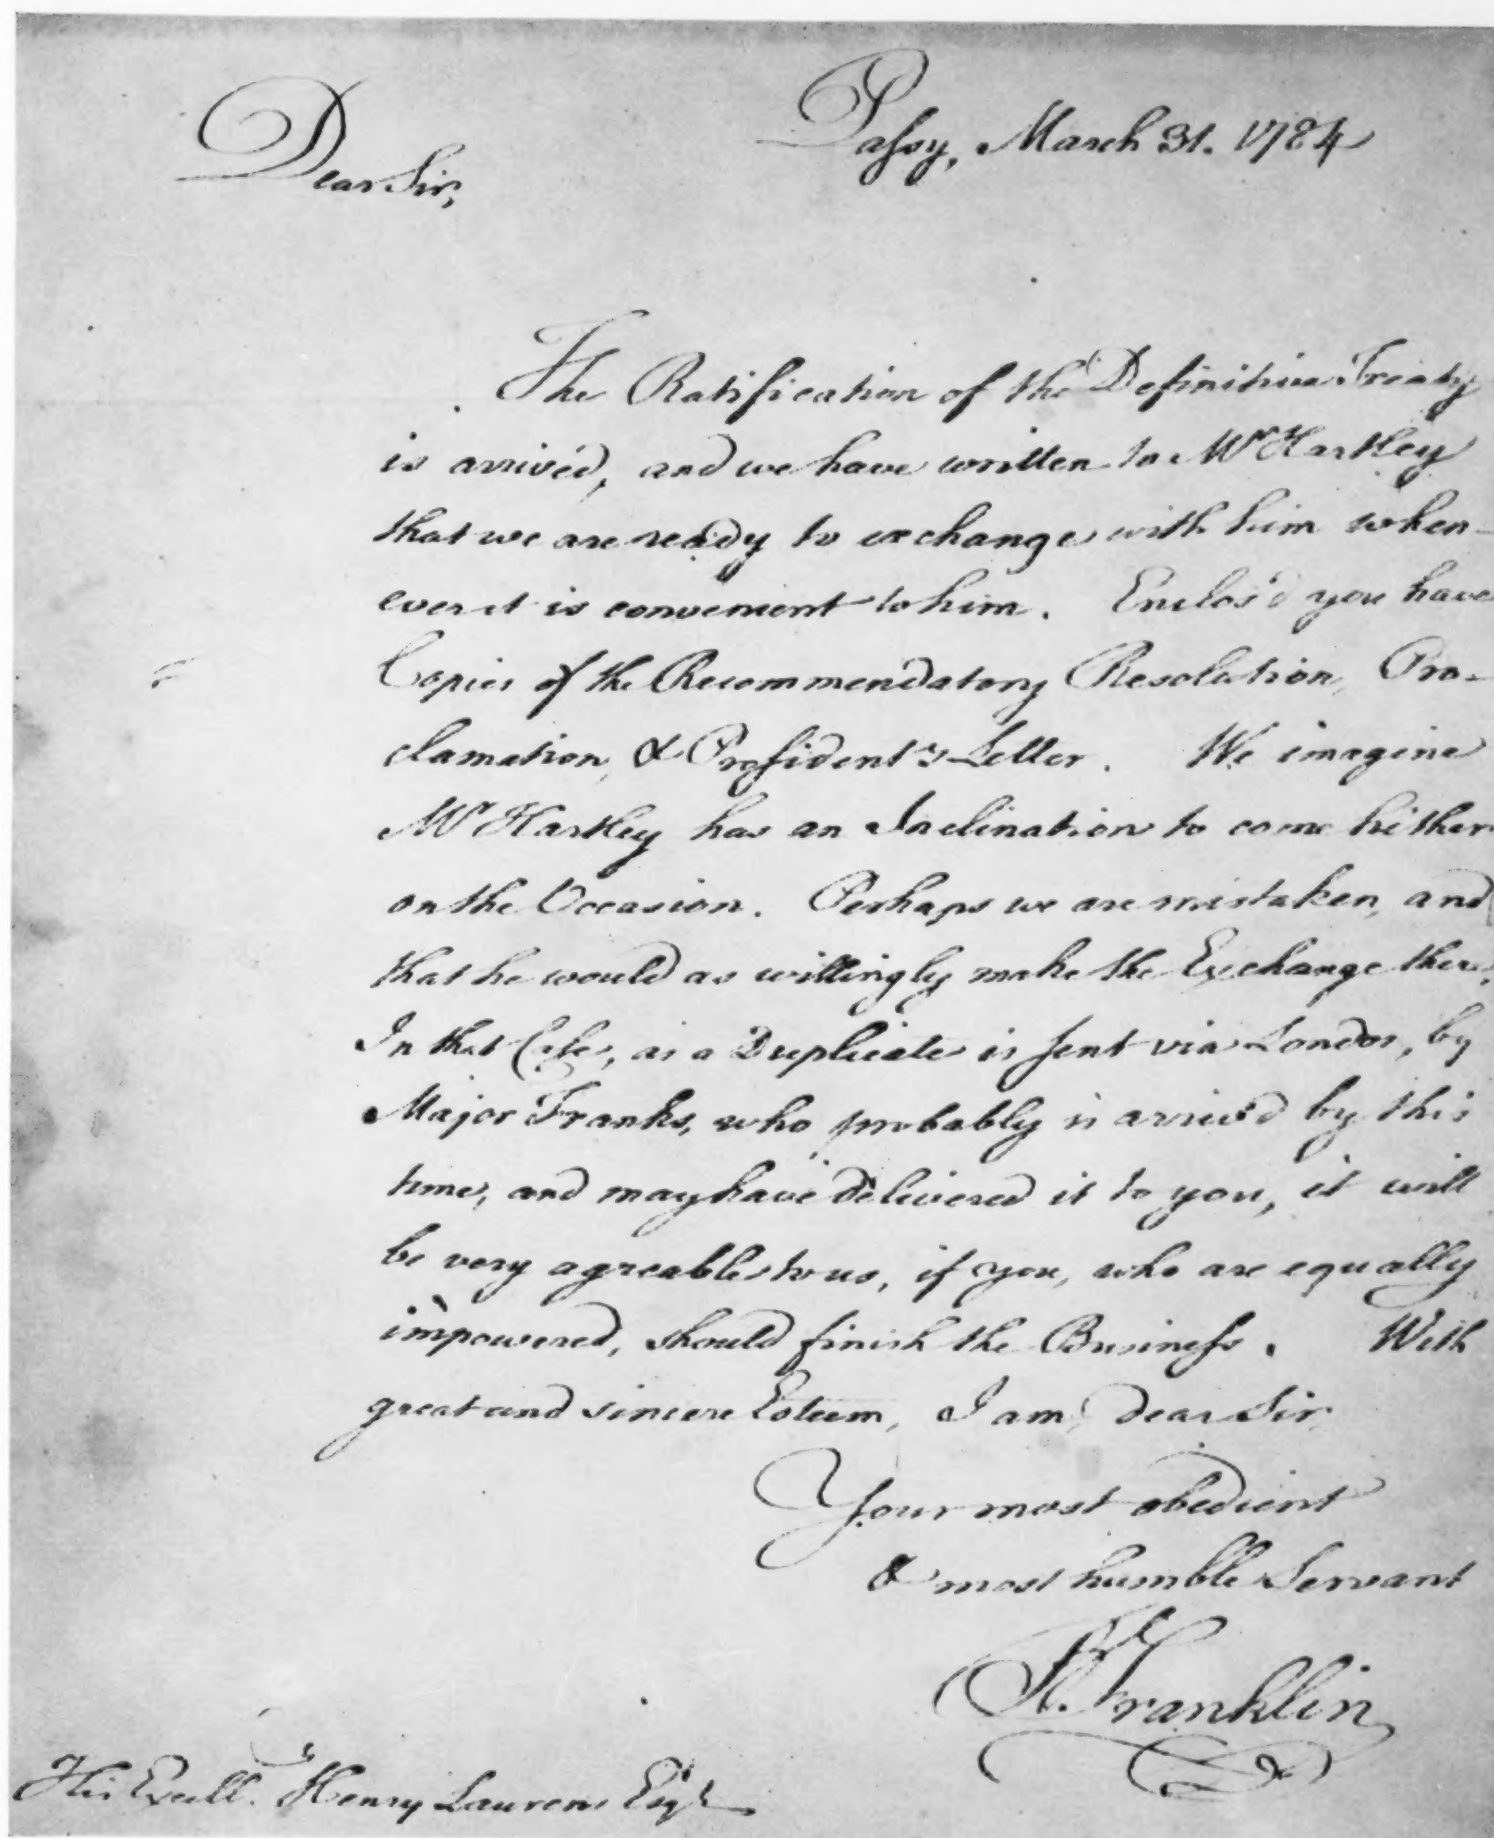 Passy, March 31. 1784
Dear Sir,
The Ratification of the Definitive Treaty
is arrived, and we have written to Mr Hartley
that we are ready to exchange with him when-
ever it is convenient to him. Enclos'd you have
Copies of the Recommendatory Resolution, Pro-
clamation, & President's Letter. We imagine
Mr Hartley has an Inclination to come hither
on the Occasion. Perhaps we are mistaken, and
that he would as willingly make the Exchange there.
In that Case, as a Duplicate is sent via London, by
Major Franks, who probably is arriv'd by this
time, and may have delivered it to you, it will
be very agreable to us, if you, who are equally
impowered, should finish the Business. With
great and sincere Esteem, I am, dear Sir,
Your most obedient
& most humble Servant
B. Franklin
His Excelly. Henry Laurens Esqr